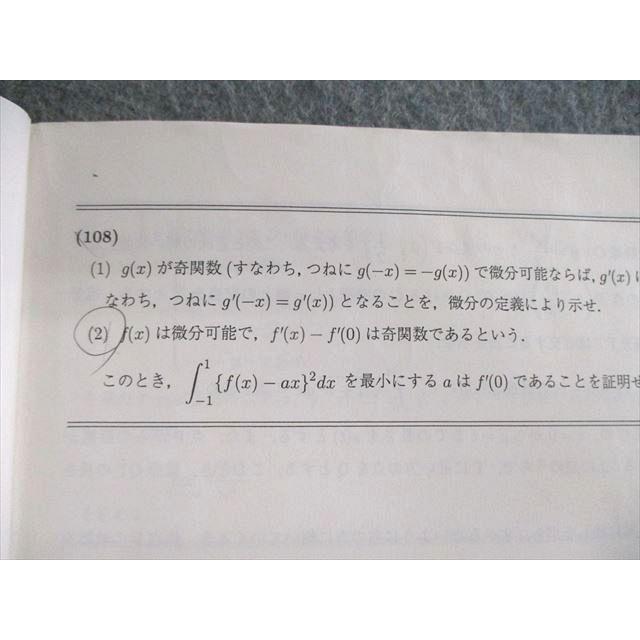 (108)
(1) g(x) が奇関数 (すなわち, つねに g(−x) = −g(x)) で微分可能ならば, g′(x) に
なわち, つねに g′(−x) = g′(x)) となることを, 微分の定義により示せ.
(2) f(x) は微分可能で, f′(x) − f′(0) は奇関数であるという.
このとき, ∫_{−1}^{1} {f(x) − ax}²dx を最小にする a は f′(0) であることを証明せ